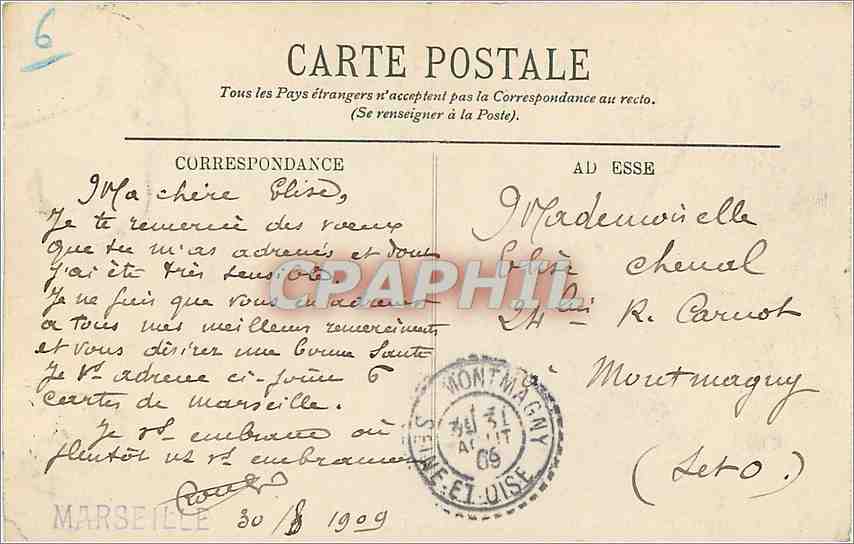 6
CARTE POSTALE
Tous les Pays étrangers n'acceptent pas la Correspondance au recto.
(Se renseigner à la Poste).
CORRESPONDANCE
Ma chère Elise,
Je te remercie des vœux
que tu m'as adressés et dont
j'ai été très sensible.
Je ne puis que vous en adresser
a tous mes meilleurs remerciments
et vous désirer une bonne Santé
Je vs adresse ci-joint 6
cartes de marseille.
Je vs embrasse ou
plutôt ns vs embrassons
MARSEILLE 30/8 1909
AD ESSE
Mademoiselle
Elise Cheval
24 bis R. Carnot
à Montmagny
(S et O.)
MONTMAGNY
31
AOUT
09
SEINE-ET-OISE
CPAPHIL